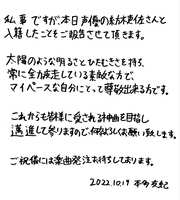 私事ですが、本日声優の結木恵佳さんと
入籍したことをご報告させて頂きます。
太陽のような明るさとひたむきさを持ち、
常に全力疾走している素敵な方で、
マイペースな自分にとって尊敬出来る方です。
これからも皆様に愛される計画を目指し
邁進して参りますので、何卒よろしくお願い致します。
ご祝儀には楽曲発注お待ちしております。
2022.10.19 本多友紀